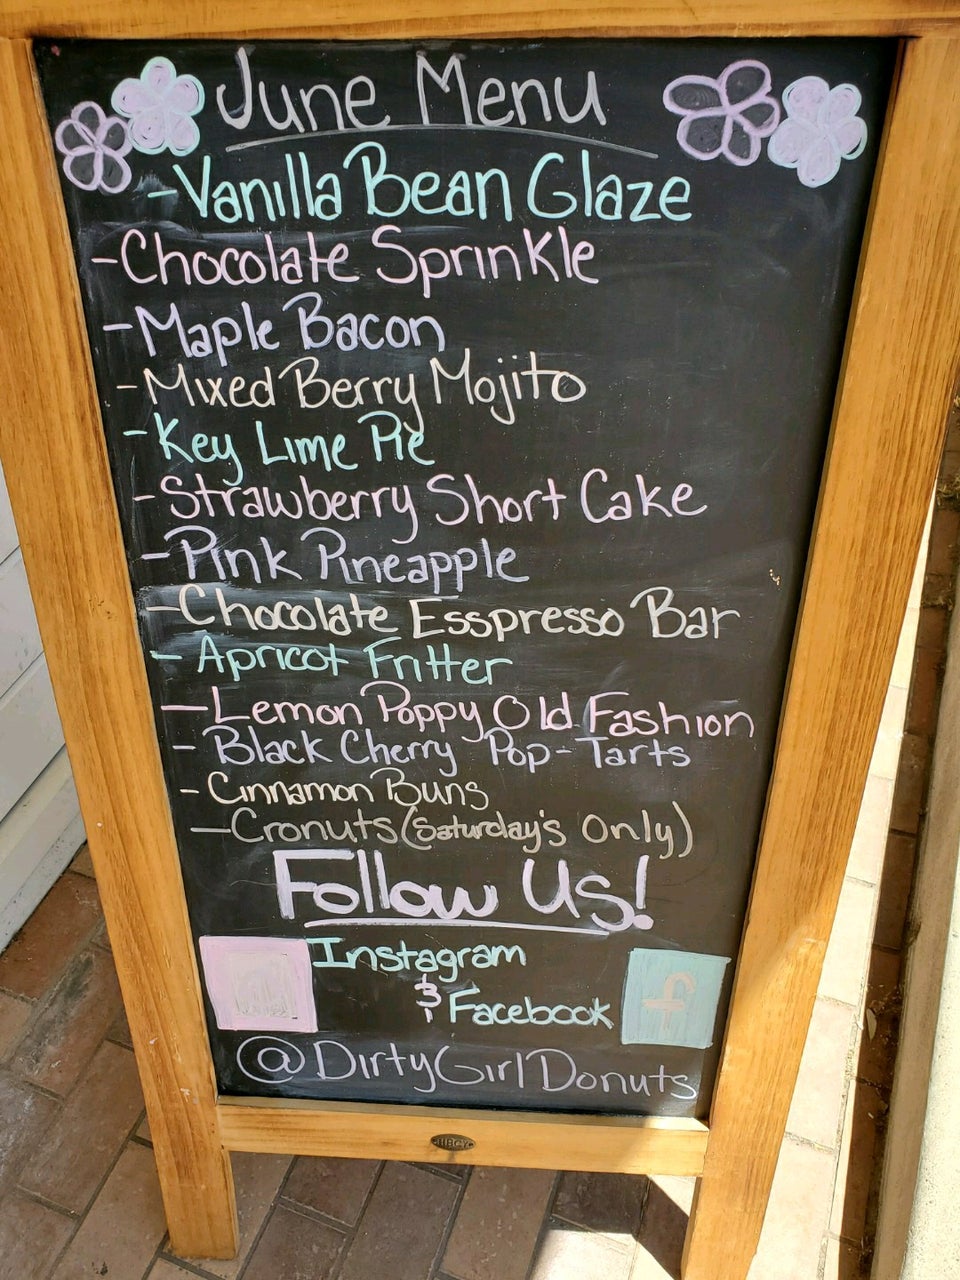 June Menu
-Vanilla Bean Glaze
-Chocolate Sprinkle
-Maple Bacon
-Mixed Berry Mojito
-Key Lime Pie
-Strawberry Short Cake
-Pink Pineapple
-Chocolate Esspresso Bar
- Apricot Fritter
-Lemon Poppy Old Fashion
- Black Cherry Pop-Tarts
- Cinnamon Buns
-Cronuts (Saturday's Only)
Follow Us!
Instagram
&
Facebook
f
@DirtyGirlDonuts